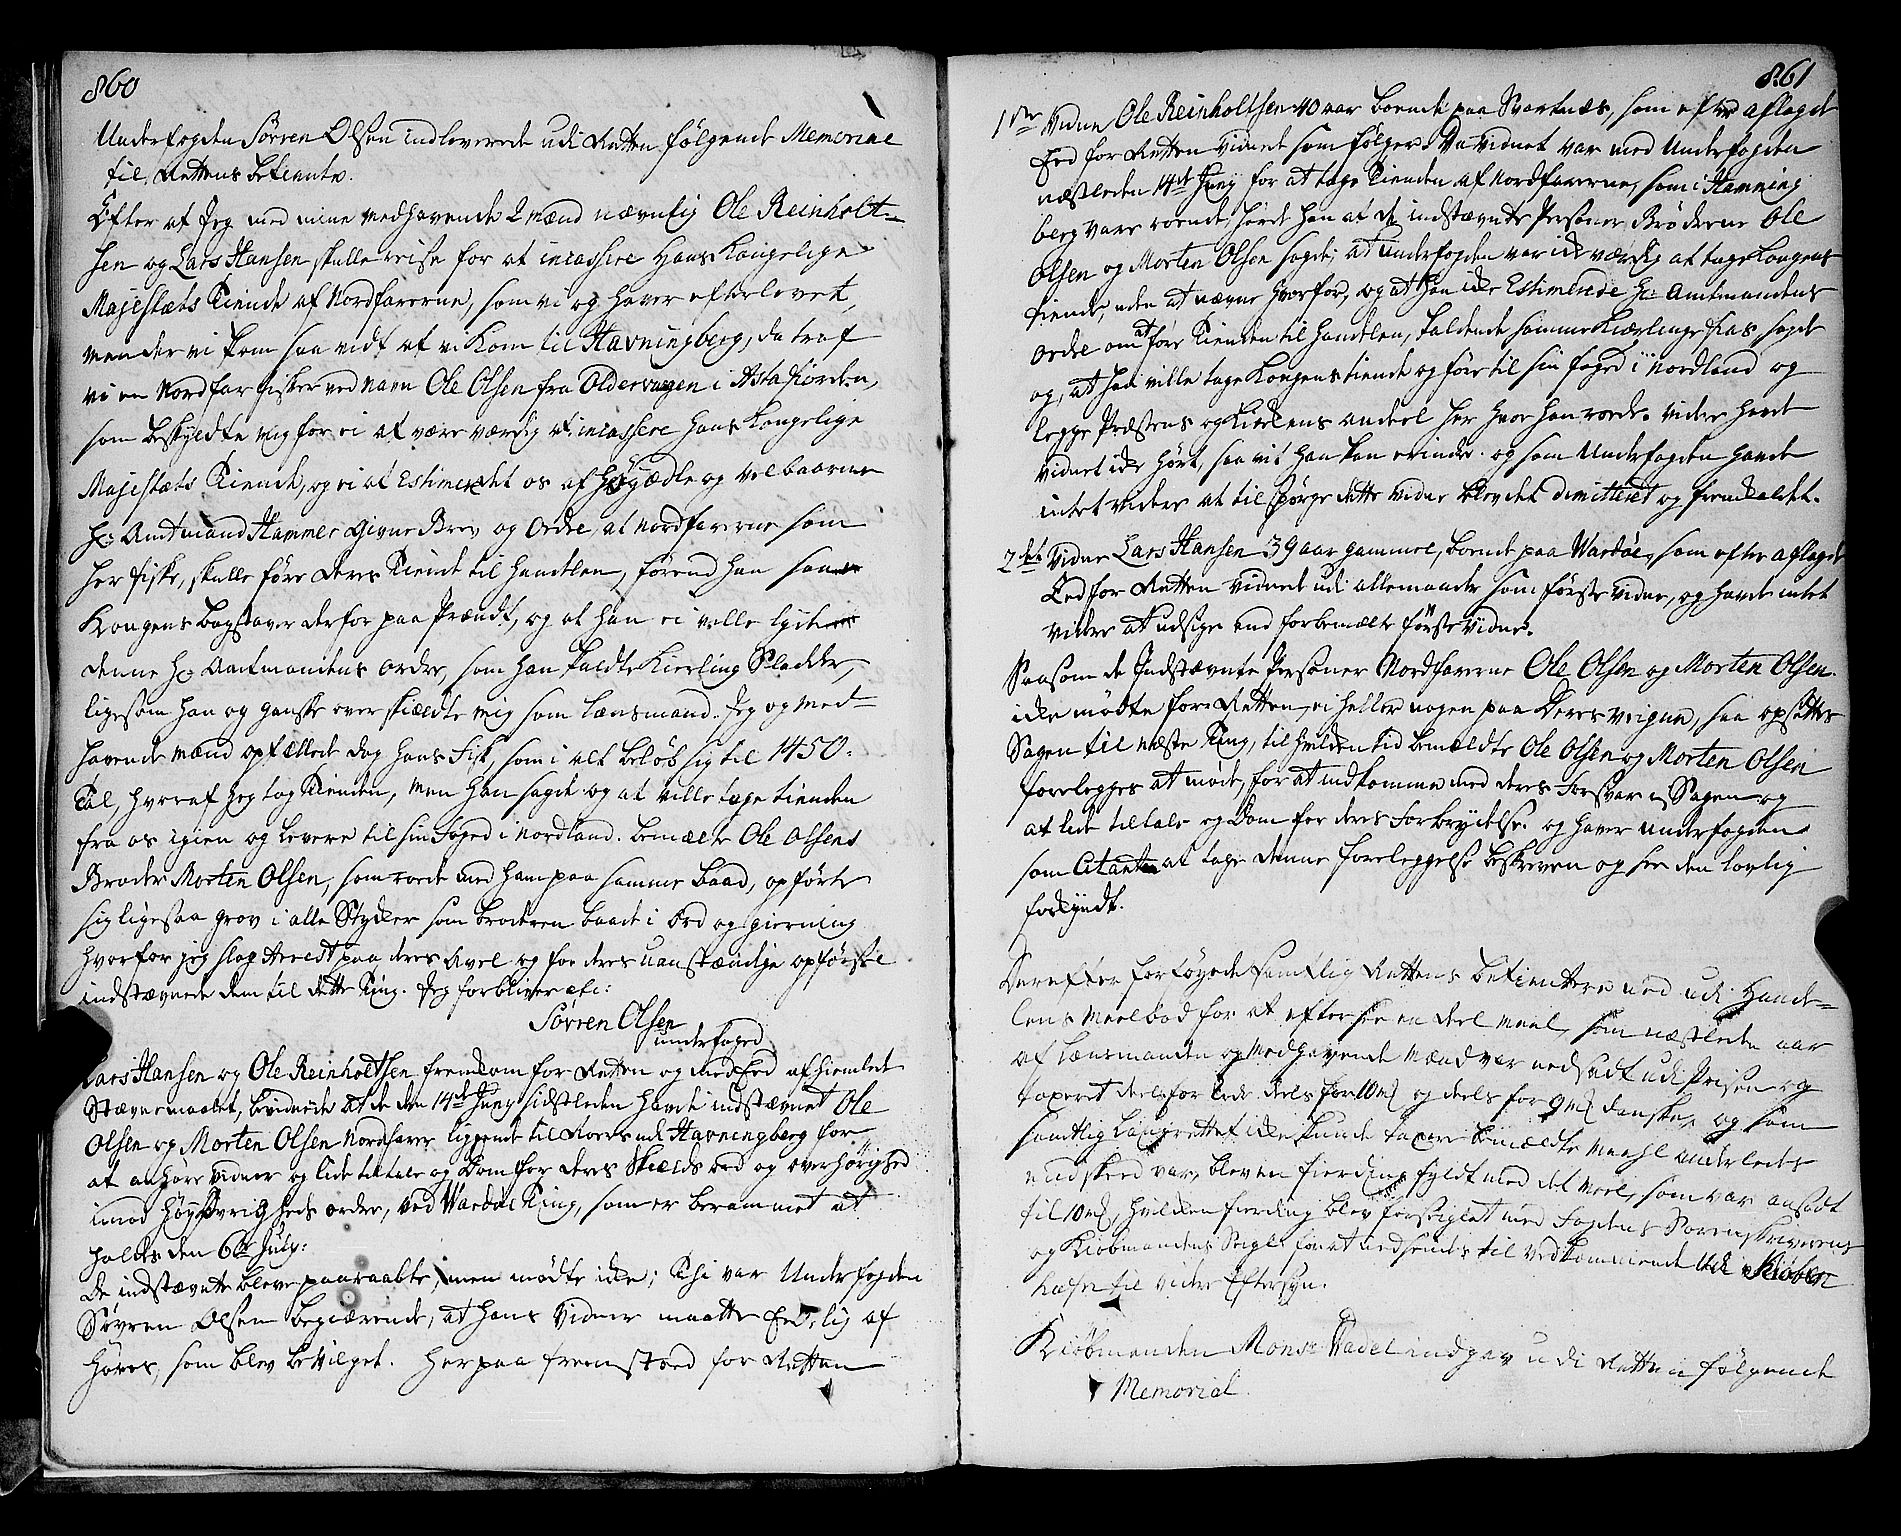 860
Underfogden Sørren Olsen indleverede udi Retten følgende Memorial
til Rettens betiente.
Efter at Jeg med mine medhavende 2 mænd nævnlig Ole Reinholt-
sen og Lars Hansen skulle reise for at incassere Hans Kongelige
Majestæts Tiende af Nordfarerne, som vi og haver efterlevet,
men der vi kom saa vidt at vi kom til Havningberg, da traf
vi en Nordfar fisker ved navn Ole Olsen fra Oldervugen i Astafiorden,
som beskyldte mig for ei at være værdig at incassere hans Kongelige
Majestæts Tiende, og ei at Estimeret os af Høyædle og velbaarne
Hr. Amtmand Hammer givne Brev og Ordre, at nordfarerne som
her fiske, skulle føre deres Tiende til handlen, førend han saae
Kongens bogstaver derfor paa Prændt, og at han ei ville lyde
denne Hr. Amtmandens ordre, som han kaldte Kierling Sladder,
ligesom han og ganske overskieldte mig som lænsmand. Jeg og med-
havende mænd optællede dog hans Fisk, som i alt beløb sig til 1450.
Tal, hvoraf jeg tog Tienden, men han sagde og at ville tage tienden
fra os igien og levere til sin Foged i Nordland. bemælte Ole Olsens
Broder Morten Olsen, som roede med ham paa samme baad, opførte
sig ligesaa grov i alle Stykker som broderen baade i Ord og gierning
hvorfor jeg slog Arrest paa deres Avel og for deres uanstændige opførsel
indstævnede dem til dette Ting. Jeg forbliver etc:
Sørren Olsen
underfoged
Lars Hansen og Ole Reinholtsen fremkom for Retten og med Eed afhiemlede
Stævnemaalet, bevidnede at de den 14de Juny sidstleden havde indstævnet Ole
Olsen og Morten Olsen Nordfarer liggende til Roers udi Havningberg for
at anhøre vidner og lide tiltale og Dom for deres Skields ord og overhørighed
imod Høy Øvrigheds ordre, ved Wardøe Ting, som er berammet at
holdes den 6te July:
De indstævnte bleve paaraabte, men mødte ikke; Thi var Underfogden
Sørren Olsen begiærende, at hans Vidner maatte Eedelig af
høres, som blev bevilget. Herpaa fremstoed for Retten
861
1ste Vidne Ole Reinholtsen 40 aar boende paa Svartnæs, som efter aflagde
Eed for Retten vidnede som følger. Da Vidnet var med Underfogden
næstleden 14de Juny for at tage Tienden af Nordfarerne, som i Hamning
berg vare roende, hørde han at de indstævnte Personer Brøderne Ole
Olsen og Morten Olsen sagde, at Underfogden var ikke værdig at tage Kongens
tiende, uden at nævne hvorfor, og at han ikke Estimerede Hr. Amtmandens
Ordre om at føre Tienden til Handlen, kaldende samme Kierlinge ... sagde
og, at han ville tage Kongens tiende og føre til sin foged i Nordland og
legge Præstens og Kirkens andeel her hvor han roede. Videre havde
vidnet ikke hørt, saavit han kan erindre. og som Underfogden havde
intet videre at tilspørge dette vidne blev det dimitteret og fremkaldet.
2det Vidne Lars Hansen 39 aar gammel, boende paa Wardøe, som efter aflagde
Eed for Retten vidnede udi allemaader som første vidne, og havde intet
videre at udsige end forbemælte første Vidne.
Saasom de Indstævnte Personer Nordfarerne Ole Olsen og Morten Olsen
ikke mødte for Retten, ei heller nogen paa Deres veigne, saa opsættes
Sagen til næste Ting, til hvilken tid bemældte Ole Olsen og Morten Olsen
forelegges at møde, for at indkomme med deres Forsvar i Sagen og
at lide tiltale og Dom for deres Forbrydelse. og haver Underfogden
som Citanten at tage denne foreleggelse beskreven og see den lovlig
forkyndt.
Derefter forføyede samtlig Rettens betienttere ned udi Hande-
lens Meelbod for at eftersee en deel Meel, som næstleden aar
af Lænsmanden og medhavende Mænd var nedsadt udi Prisen og
taxeret deels for ... deels for 10 m͡k og deels for 9 m͡k danske, og som
samtlig Laugrettet ikke kunde taxere bemældte Meehl anderledes
end skeed var, blev en fierding fyldt med det Meel, som var ansadt
til 10 m͡k, hvilken fierding blev forseiglet med Fogdens Sorenskriverens
og Kiøbmandens Seigl for at nedsendes til vedkommende udi Kiøben
hafn til videre Eftersyn.
Kiøbmanden Monsr Wadel indgav udi Retten følgende
Memorial.